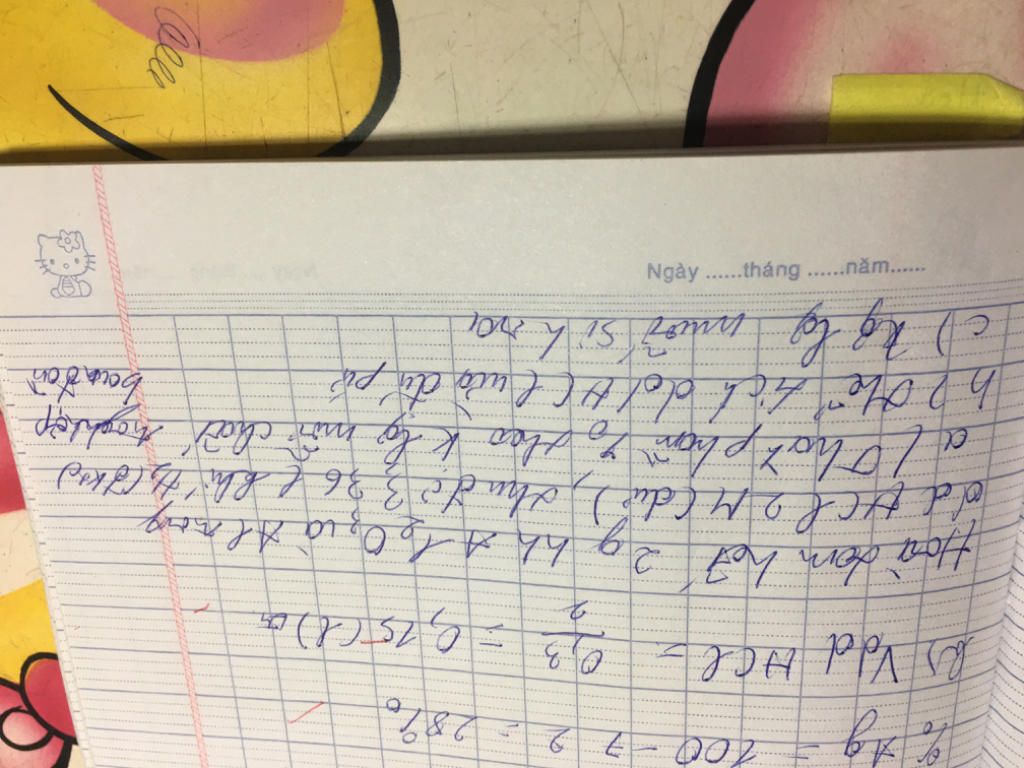 % Ag = 100 - 7 2 = 28%
b) Vdd HCl = 0,3 / 2 = 0,15 (l)
Hoà tan hết 2 g hh Al2O3 và Al trong
dd HCl 2M (dư), thu đc 3 36 l khí H2 (đktc)
a) thành phần % theo k lg mỗi chất
ban đầu
b) thể tích dd HCl vừa đủ pứ
c) kg lg muối
Ngày ......tháng ......năm......